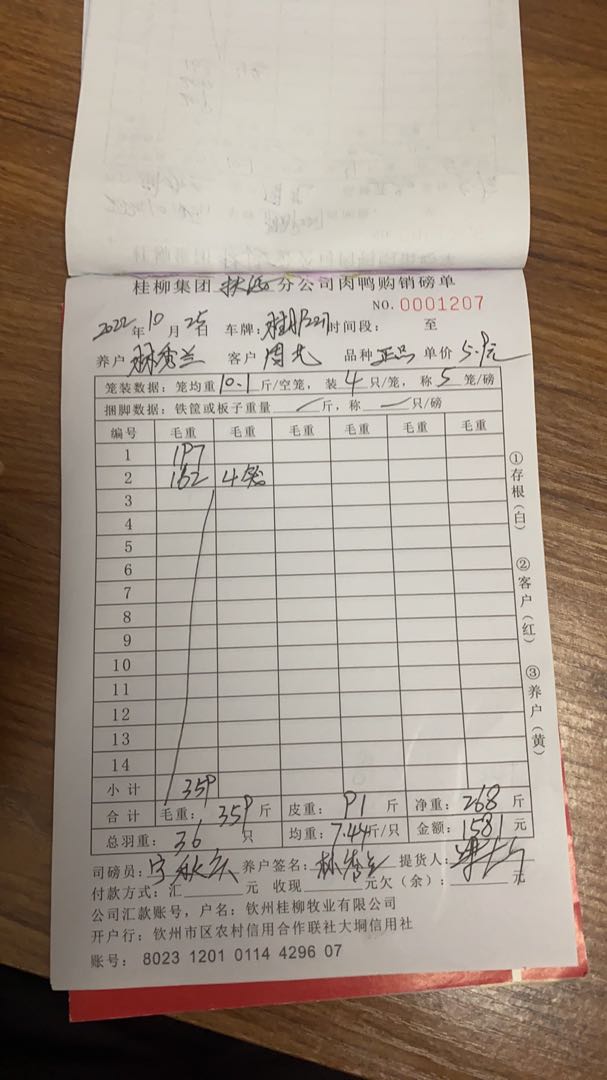 桂柳集团 分公司肉鸭购销磅单
NO. 0001207
2022年10月25日 车牌: 时间段: 至
养户 林秀兰 客户 周 品种 正品 单价 5.9元
笼装数据: 笼均重10.1斤/空笼, 装4只/笼, 称5笼/磅
捆脚数据: 铁筐或板子重量 斤, 称 只/磅
编号 毛重 毛重 毛重 毛重 毛重 毛重
1 197
2 162 4笼
3
4
5
6
7
8
9
10
11
12
13
14
小计 359
合计 毛重: 359斤 皮重: 91斤 净重: 268斤
总羽重: 36只 均重: 7.44斤/只 金额: 1581元
司磅员: 养户签名: 林秀兰 提货人:
付款方式: 汇 元 收现 元欠(余): 元
公司汇款账号, 户名: 钦州桂柳牧业有限公司
开户行: 钦州市区农村信用合作联社大垌信用社
账号: 8023 1201 0114 4296 07
①存根(白)
②客户(红)
③养户(黄)